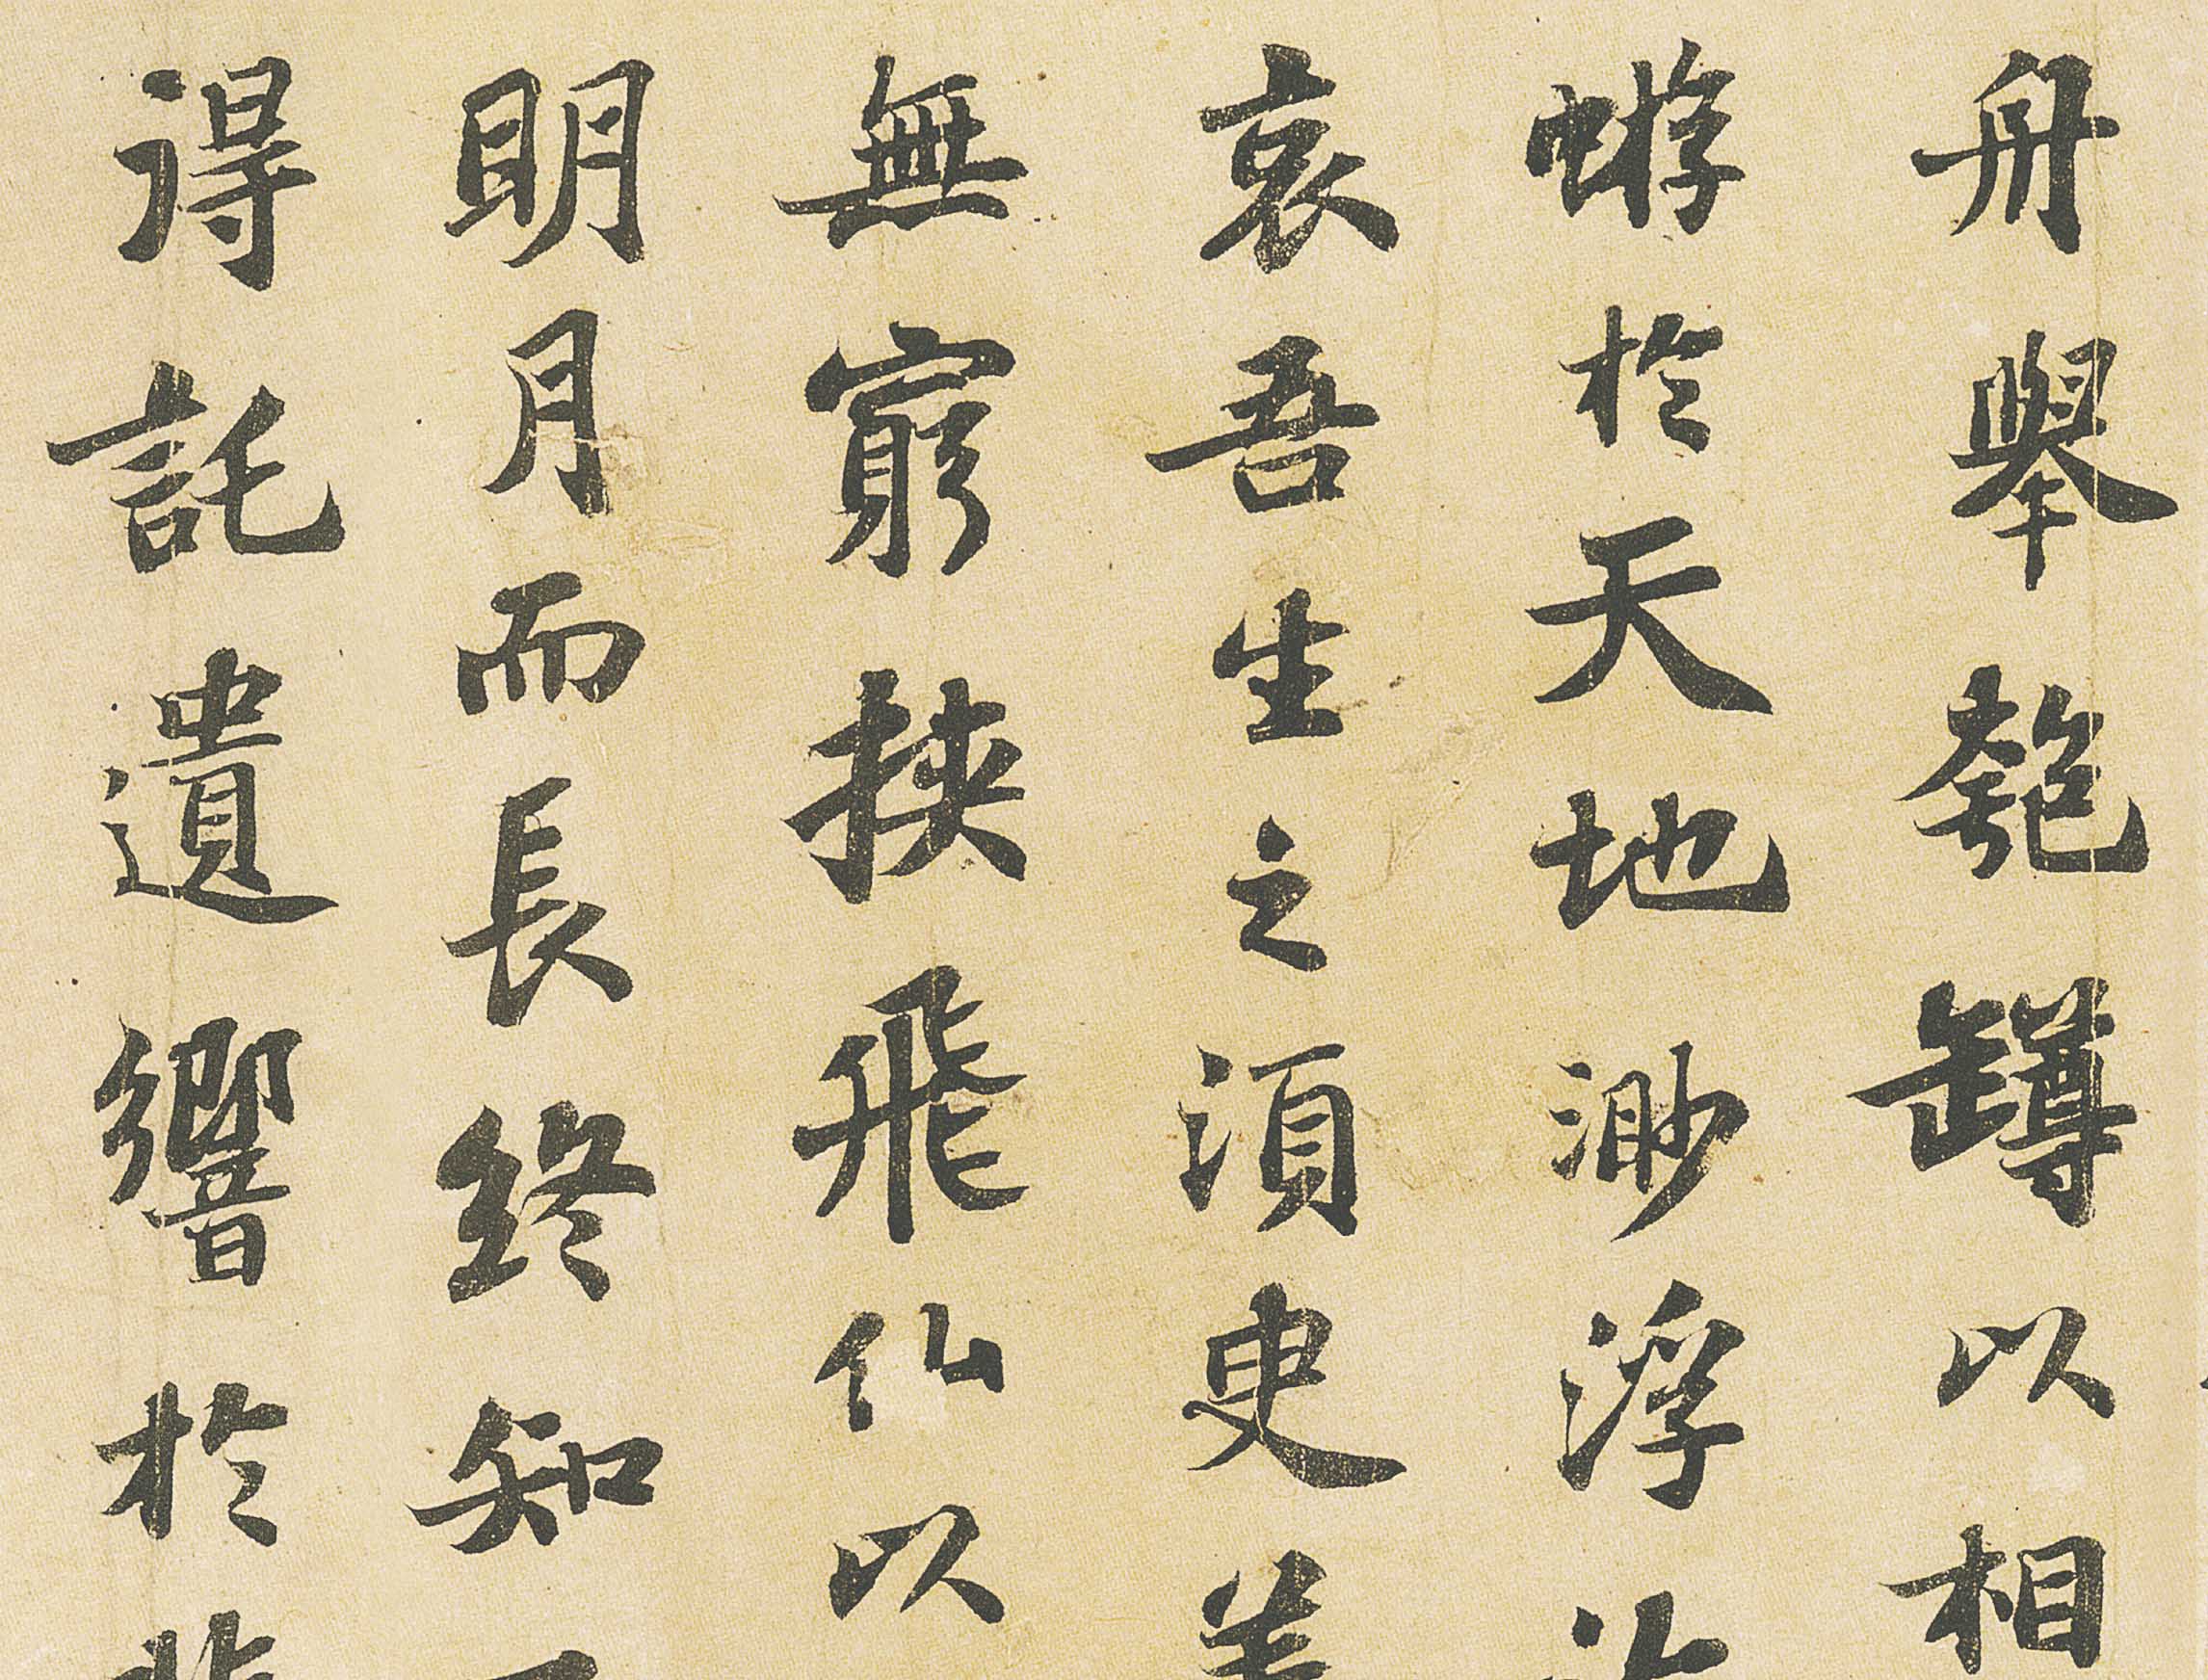 舟舉匏罇以相
蝣於天地渺浮
哀吾生之須臾羡
無窮挟飛仙以
明月而長終知
得託遺響於悲